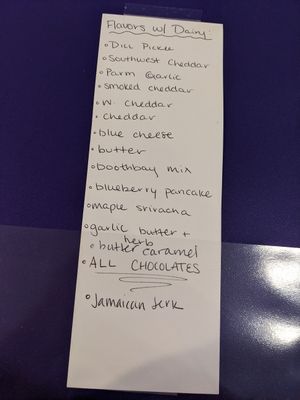 Flavors w/ Dairy:
• Dill Pickle
• Southwest Cheddar
• Parm Garlic
• smoked cheddar
• W. Cheddar
• cheddar
• blue cheese
• butter
• boothbay mix
• blueberry pancake
• maple sriracha
• garlic butter +
herb
• butter caramel
• ALL CHOCOLATES
• Jamaican Jerk